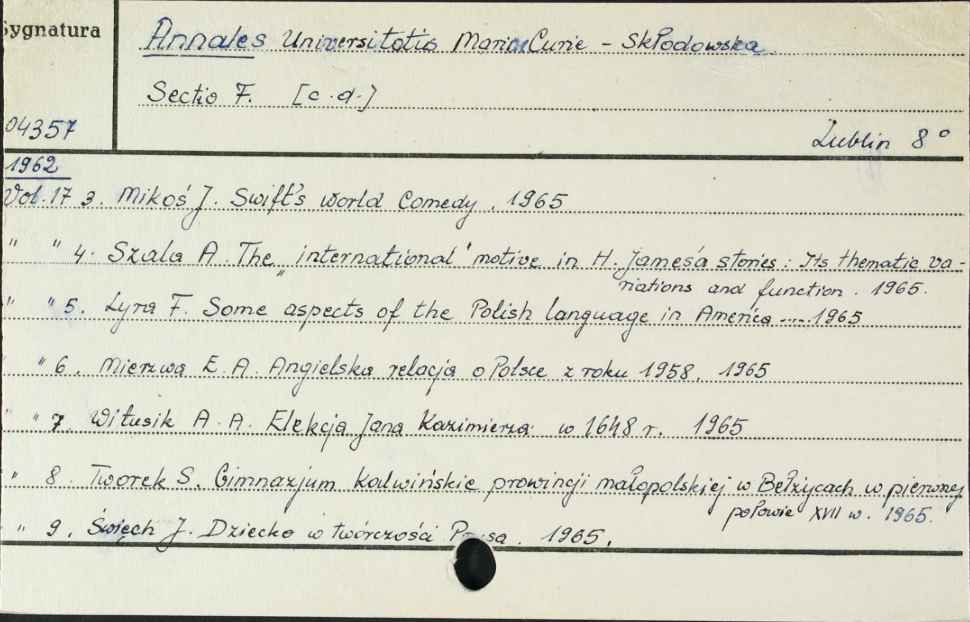 Sygnatura
Annales Universitatis Mariae Curie - Skłodowska
Sectio F. [c.d.]
04357
Lublin 8°
1962
Vol. 17 3. Mikoś J. Swift's world Comedy. 1965
" " 4. Szala A. The "international" motive in H. James'a stories: Its thematic va-
riations and function. 1965.
" " 5. Lyra F. Some aspects of the Polish language in America .... 1965
" " 6. Mierzwa E. A. Angielska relacja o Polsce z roku 1958. 1965
" " 7. Witusik A. A. Elekcja Jana Kazimierza w 1648 r. 1965
" 8. Tworek S. Gimnazjum kalwińskie prowincji małopolskiej w Bełżycach w pierwszej
połowie XVII w. 1965.
" " 9. Święch J. Dziecko w twórczości Prusa. 1965.